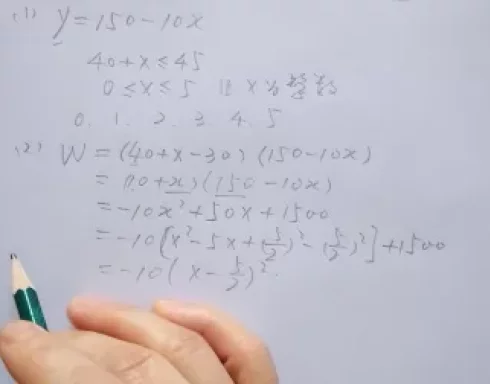 (1) Y=150-10x
40+x≤45
0≤x≤5 且x为整数
0. 1. 2. 3. 4. 5
(2) W=(40+x-30)(150-10x)
=(10+x)(150-10x)
=-10x²+50x+1500
=-10[x²-5x+(5/2)²-(5/2)²]+1500
=-10(x-5/2)².